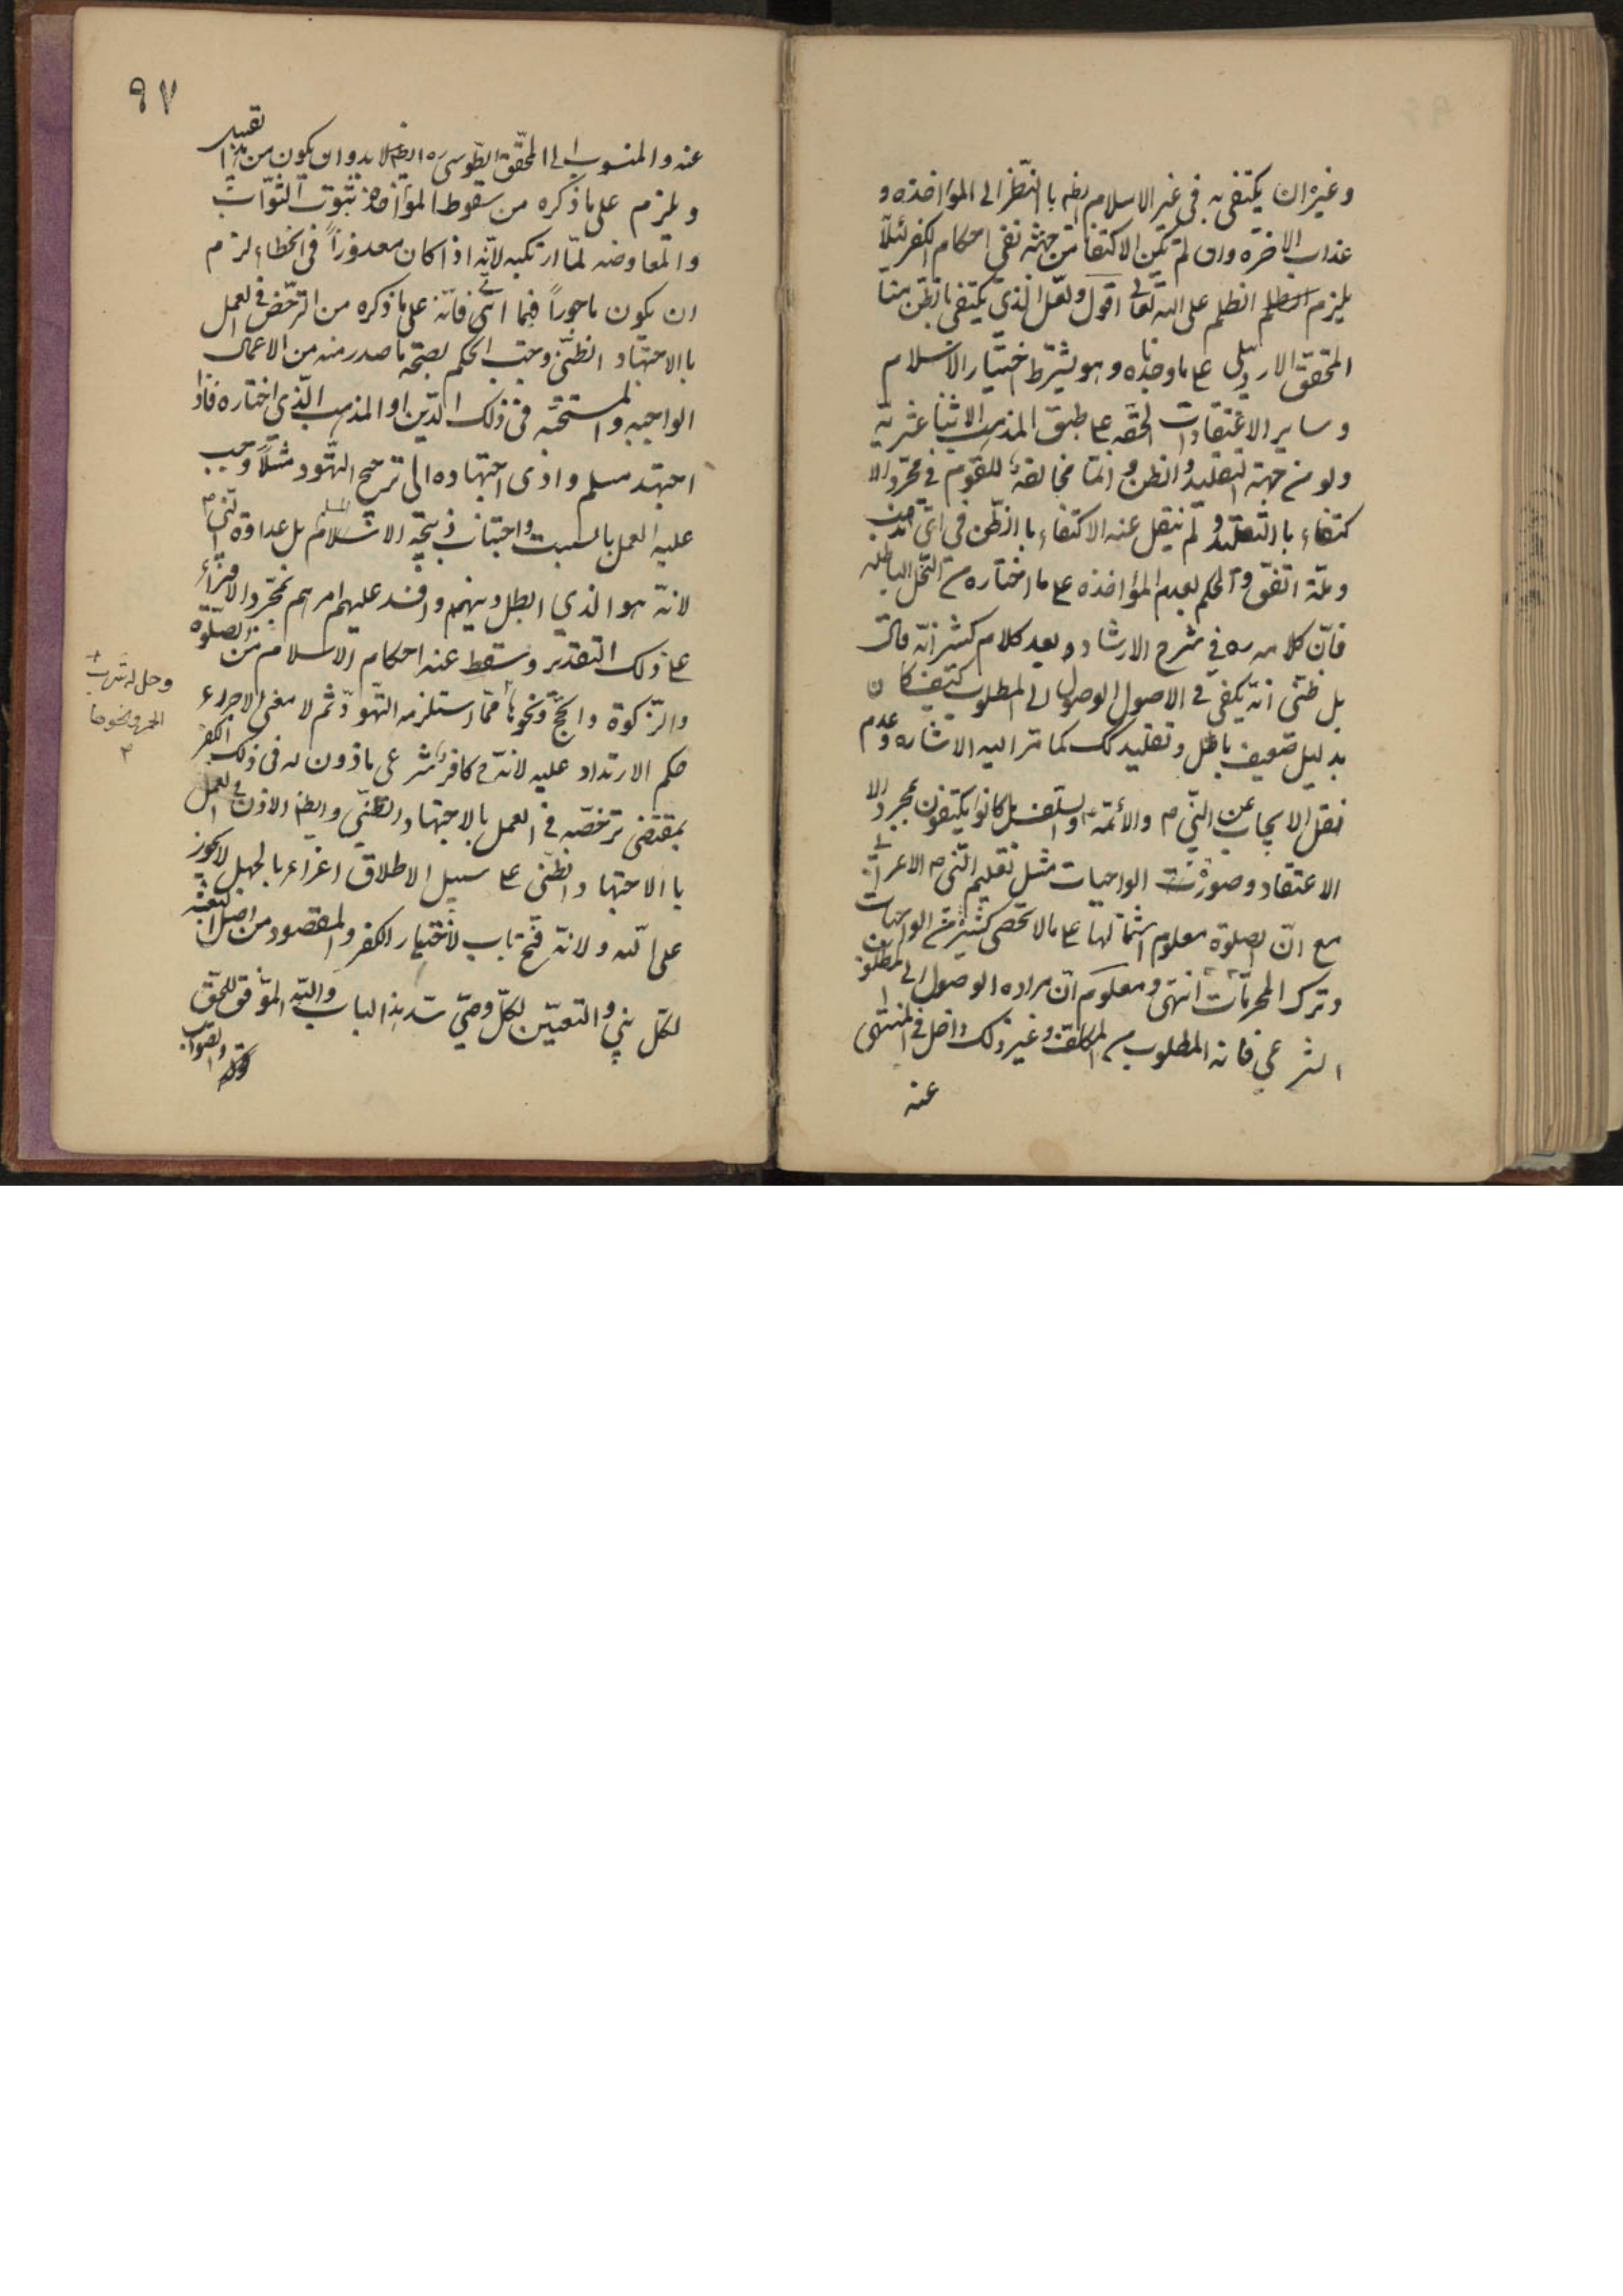 وغيره ان يكتفى به فى غير الاسلام ايضه بالنظر الى المؤاخذه و
عذاب الاخره وان لم يكن الاكتفا من جهته نفى احكام الكفر لئلا
يلزم الظلم على الله تعالى اقول ولعل الذى يكتفى بالظن منا
المحقق الاردبيلى على ما وجدناه وهو يشترط اختيار الاسلام
وساير الاعتقادات الحقه على طبق المذهب الاثنا عشريه
ولو من جهة التقليد والظن وانما مخالفته للقوم فى مجرد الا
كتفاء بالتقليد ولم ينقل عنه الاكتفاء بالظن فى اى مذهب
وملة اتفق والحكم بعدم المؤاخذه على ما اختاره من النحل الباطله
فان كلامه ره فى شرح الارشاد وبعد كلام كثير انه قال
بل ظنى انه يكفى فى الاصول الوصول الى المطلوب كيف كان
بدليل ضعيف باطل وتقليد كك كما مر اليه الاشاره وعدم
نقل الايجاب عن النبى ص والائمة ع والسلف بل كانوا يكتفون بمجرد الا
الاعتقاد وصورت الواجبات مثل تعليم النبى ص الاعرابى
مع ان الصلوة معلوم اشتمالها على ما لا تحصى كثيرة من الواجبات
وترك المحرمات انتهى ومعلوم ان مراده الوصول الى المطلوب
الشرعى فانه المطلوب من المكلف وغير ذلك داخل فى المنتهى
عنه
٩٧
عنه والمنسوب الى المحقق الطوسى ره ايضا لا بد وان يكون من هذا تقييد
ويلزم على ما ذكره من سقوط المؤاخذه ثبوت الثواب
والمعاوضه لما ارتكبه لانه اذا كان معذورا فى الخطاء لزم
ان يكون ماجورا فيما اتى فانه على ما ذكره من الترخص فى العمل
بالاجتهاد الظنى وجب الحكم بصحة ما صدر منه من الاعمال
الواجبه والمستحبه فى ذلك الدين او المذهب الذى اختاره فاذا
اجتهد مسلم وادى اجتهاده الى ترجيح التهود مثلا وجب
عليه العمل بالسبت واجتناب ذبيحة الاسلام بل عداوة النبى ص
لانه هو الذى ابطل دينهم وافسد عليهم امرهم بمجرد الافتراء
على ذلك التقدير وسقط عنه احكام الاسلام من الصلوة
والزكوة والحج ونحوها مما يستلزمه التهود ثم لا معنى لاجراء
حكم الارتداد عليه لانه ح كافر شرعى ماذون له فى ذلك الكفر
بمقتضى ترخصه فى العمل بالاجتهاد الظنى وايضا الاذن فى العمل
بالاجتهاد الظنى على سبيل الاطلاق اغراء بالجهل لا يجوز
على الله ولانه فتح باب لاختيار الكفر والمقصود من اصل البعثة
لكل نبى والتعيين لكل وصى سد هذا الباب والله الموفق للحق
والصواب
قوله
وحل له شرب
الخمر ونحوها